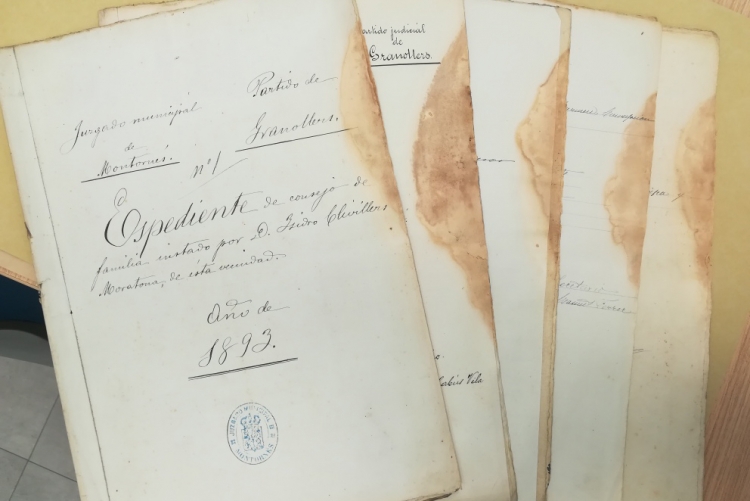 Juzgado municipial
de
Montornés.
Partido de
Granollers.
nº 1
Espediente de consejo de
familia instado por D. Isidro Clivillers
Moratona, de esta vecindad.
Año de
1893.
MONTORNÉS
partido judicial
de
Granollers.
Vila